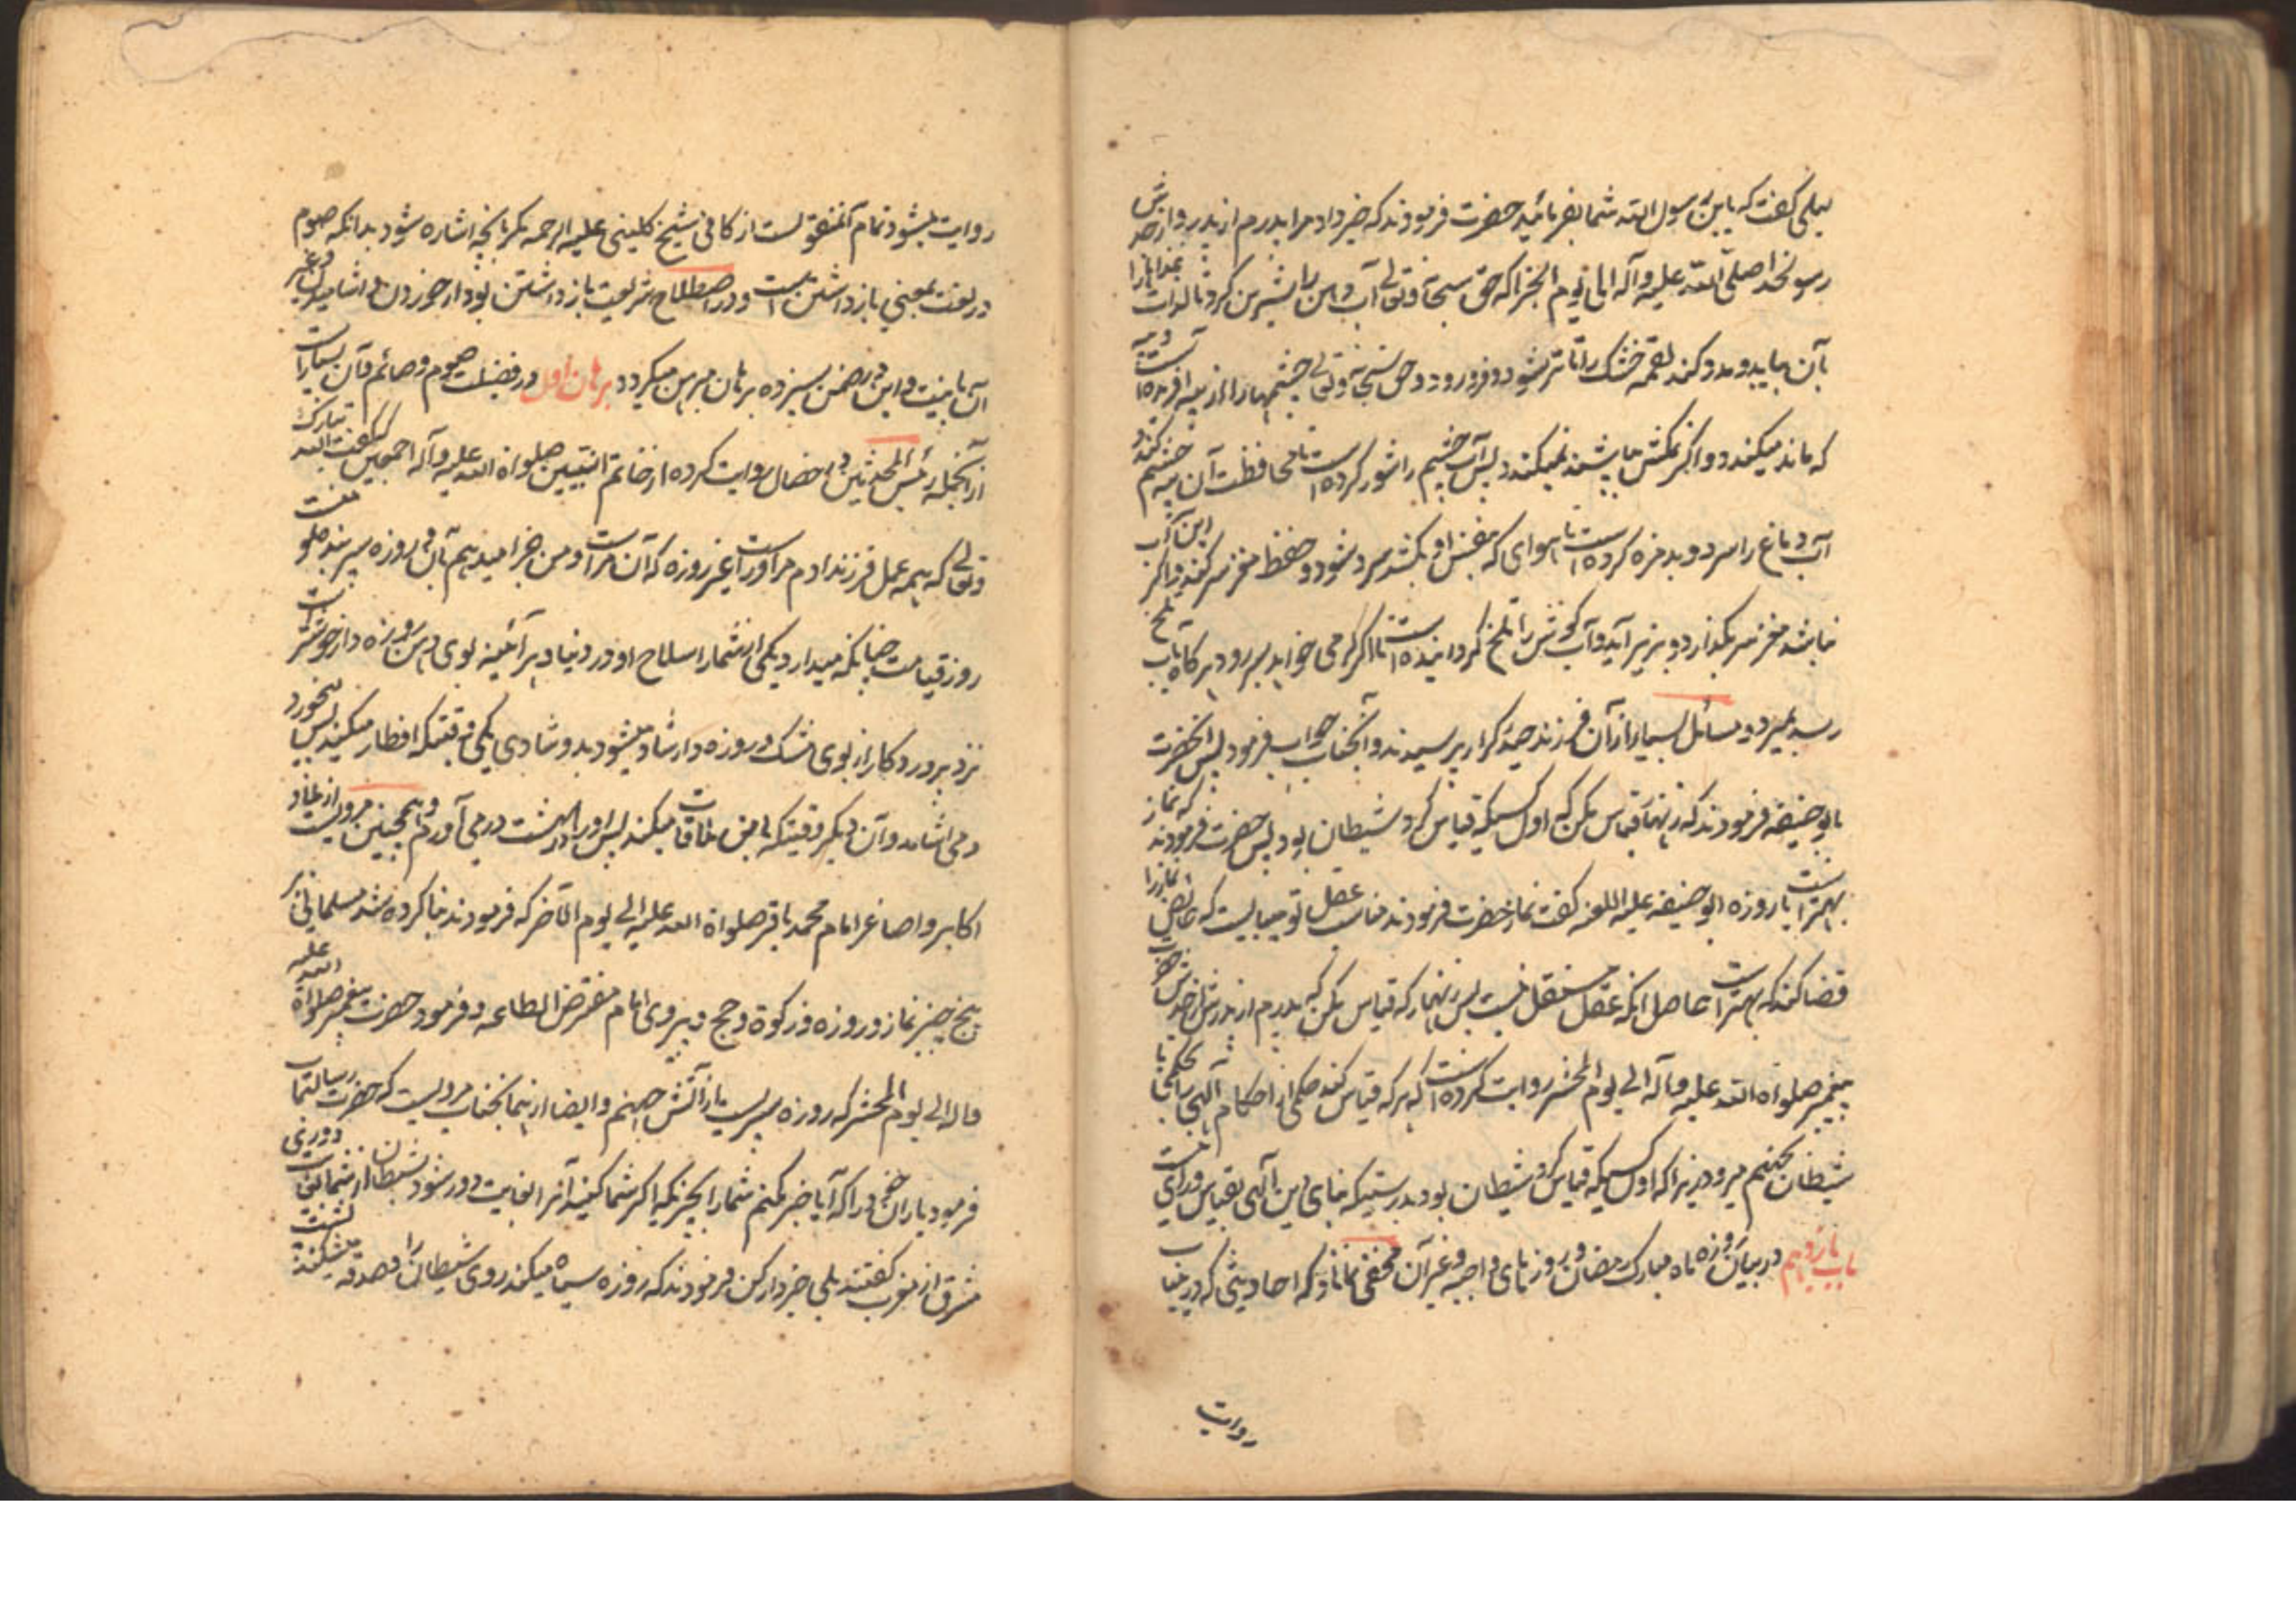 بلی گفت که یابن رسول الله شما بفرمائید حضرت فرمودند که خبر داد مرا پدرم از پدر و از جدش
رسولخدا صلی الله علیه وآله الی یوم الجزا که حق سبحانه وتعالی آب دهن را شیرین کرد تا لذات غذاها را
بآن بیابد و مدد کند لقمه خشک را تا تر شود و فرو رود و حق سبحانه وتعالی چشمها را از پیه آفریده است و پیه
که ماند میکند و اگر نمکش باشد نمیکند پس آب چشم را شور کرده است تا محافظت آن پیه چشم کند و
آب دماغ را سرد و بدمزه کرده است تا هوای که بنفس او بکشد سرد شود و حفظ مغز سر کند و اگر این آب
نباشد مغز سر بگذارد و بزیر آید و آب گوش را تلخ گردانیده است تا اگر کرمی خواهد بسر رود هرگاه بآب تلخ
رسد بمیرد و مسائل بسیار از آن فرزند حیدر کرار پرسیدند و آنجناب جواب فرمود پس آنحضرت
بابو حنیفه فرمودند که زنهار قیاس مکن که اول کسیکه قیاس کرد شیطان بود پس حضرت فرمودند که نماز
بهتر است یا روزه ابو حنیفه علیه اللعنه گفت نماز حضرت فرمودند مناسب عقل تو میبایست که حائض نماز را
قضا کند که بهتر است حاصل آنکه عقل مستقل نیست پس زنهار که قیاس مکن که پدرم از پدرش از جدش حضرت
پیغمبر صلواة الله علیه وآله الی یوم المحشر روایت کرده است که هر که قیاس کند حکمی از احکام آلهی را بحکمی با
شیطان بجهنم میرود زیرا که اول کسیکه قیاس کرد شیطان بود بدرستیکه بنای دین آلهی بقیاس و رای نیست
باب یازدهم در بیان روزه ماه مبارک رمضان و روزهای واجبه و غیر آن مخفی نماناد که احادیثی که درین باب
روایت
روایت میشود تمام آن منقولست از کافی شیخ کلینی علیه الرحمه مگر بآنچه اشاره شود بدانکه صوم
در لغت بمعنی بازداشتن است و در اصطلاح شریعت بازداشتن بود از خوردن و آشامیدن و غیر
آن با نیت و این در ضمن سیزده برهان مبرهن میگردد برهان اول در فضیلت صوم و صائم و آن بسیار است
از آنجمله رئیس المحدثین در خصال روایت کرده از خاتم النبیین صلواة الله علیه وآله اجمعین که گفت الله تبارک
وتعالی که همه عمل فرزند آدم مر او راست غیر روزه که آن مراست و من جزا میدهم بآن و روزه سپر بنده مؤمنست
روز قیامت چنانکه میدارد یکی از شما را سلاح او در دنیا و هر آئینه بوی دهن روزه دار خوشتر است
نزد پروردگار از بوی مشک و روزه دار شاد میشود بدو شادی یکی وقتیکه افطار میکند پس میخورد
و می آشامد و آن دیگر وقتیکه با من ملاقات میکند پس او را در بهشت در می آورم و همچنین مرویست از هادی
اکابر و اصاغر امام محمد باقر صلواة الله علیه الی یوم الآخر که فرمودند بنا کرده شد مسلمانی بر
پنج چیز نماز و روزه و زکوة و حج و پیروی امام مفترض الطاعه و فرمود حضرت پیغمبر صلواة الله علیه
وآله الی یوم المحشر که روزه سپریست از آتش جهنم و ایضا از اینجناب مرویست که حضرت رسالتماب
فرمود یاران خود را که آیا خبر بکنم شما را بچیزیکه اگر شما بکنید آنرا بغایت دور شود شیطان از شما بقدر دوری
مشرق از مغرب گفتند بلی خبردار کن فرمودند که روزه سیاه میکند روی شیطان را و صدقه میشکند پشت